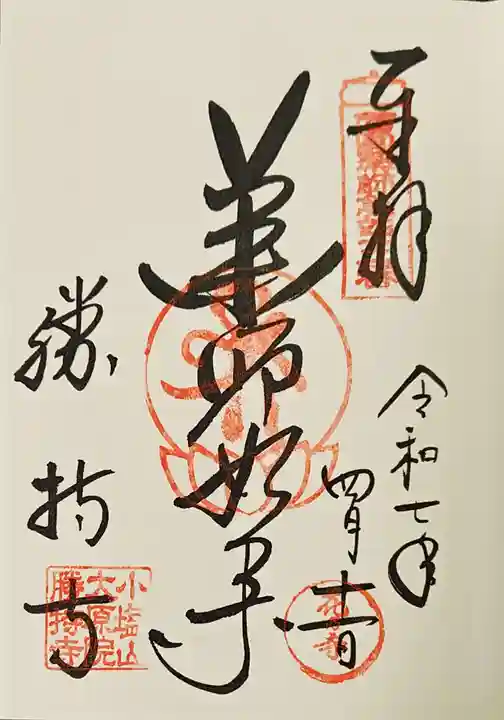 奉拝
令和七年
四月十一日
薬師如来
勝持寺
小塩山
大原院
勝持寺
花の寺